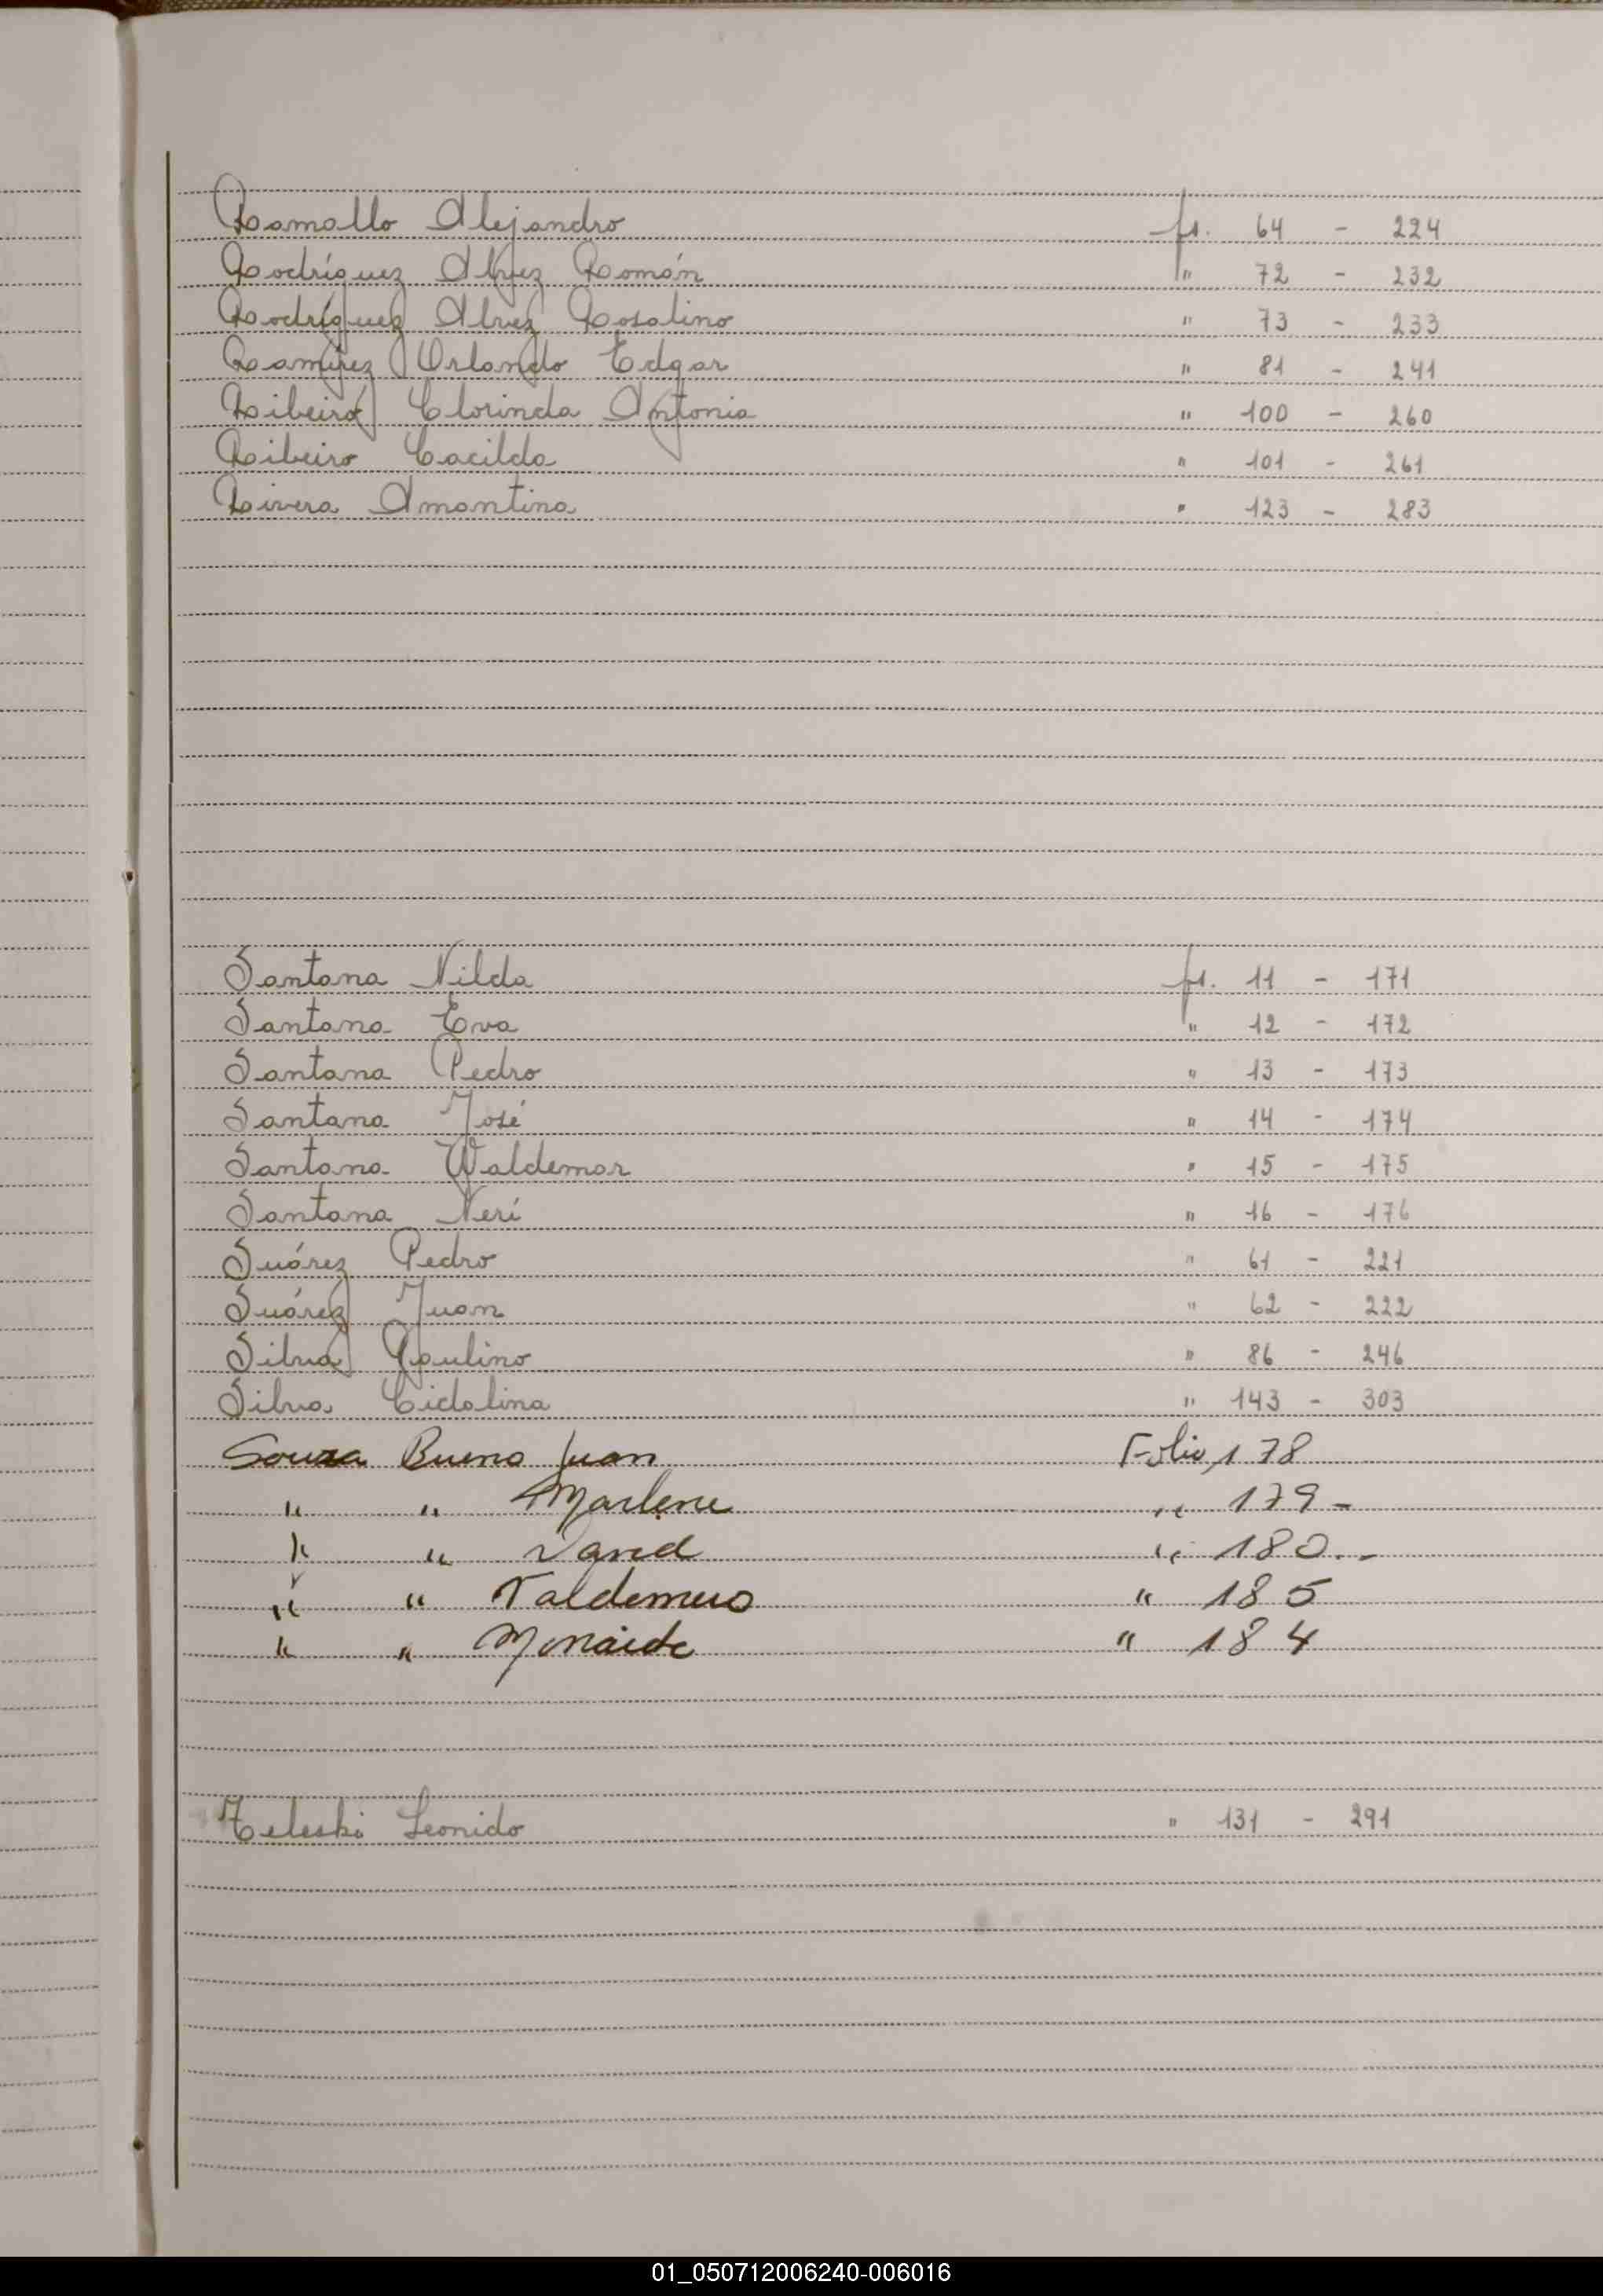 Ramallo Alejandro fs. 64 - 224
Rodríguez Alvez Román " 72 - 232
Rodríguez Alvez Rosalino " 73 - 233
Ramírez Orlando Edgar " 81 - 241
Ribeiro Clorinda Antonia " 100 - 260
Ribeiro Cacilda " 101 - 261
Rivera Amantina " 123 - 283
Santana Nilda fs. 11 - 171
Santana Eva " 12 - 172
Santana Pedro " 13 - 173
Santana José " 14 - 174
Santana Waldemar " 15 - 175
Santana Neri " 16 - 176
Suárez Pedro " 61 - 221
Suárez Juan " 62 - 222
Silva Paulino " 86 - 246
Silva Cidolina " 143 - 303
Souza Bueno Juan Folio, 178
" " Marlene " 179 -
" " David " 180. -
" " Valdemero " 185
" " " 184
Teleski Leonido " 131 - 291
01_050712006240-006016